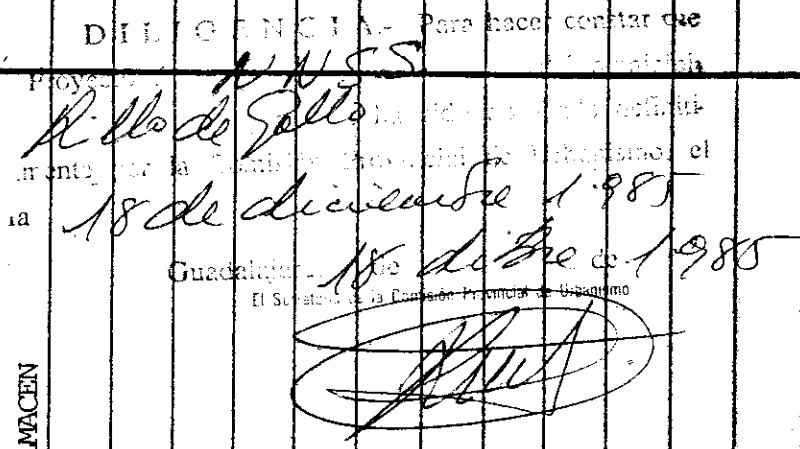 DILIGENCIA.- Para hacer constar que
Proyecto NNSS
Rillo de Gallo ha sido definiti-
mente por la Comisión Provincial de Urbanismo, el
ia 18 de diciembre 1.985
Guadalajara, 18 de diBre de 1.985
El Secretario de la Comisión Provincial de Urbanismo
MACEN